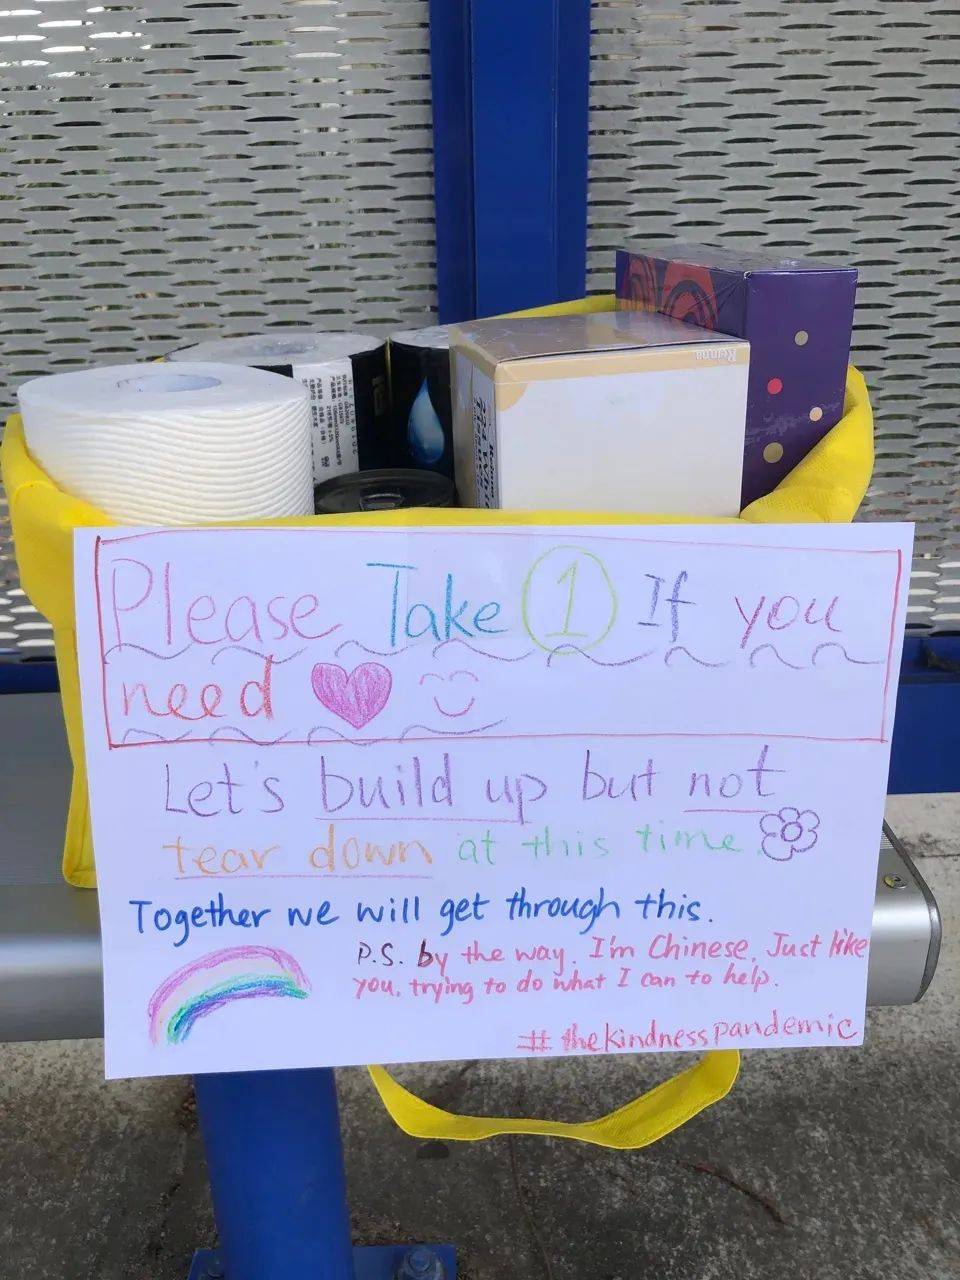 Renna
Please Take 1 If you
need
Let's build up but not
tear down at this time.
Together we will get through this.
P.S. by the way. I'm Chinese. Just like
you, trying to do what I can to help.
#thekindnesspandemic